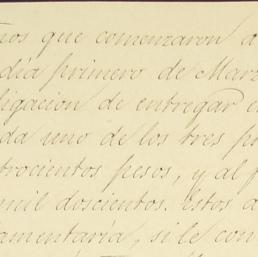 ños que comenzaron a
día primero de Marz
ligacion de entregar e
da uno de los tres p
trocientos pesos, y al f
mil doscientos. Estos d
amentaría, si le con